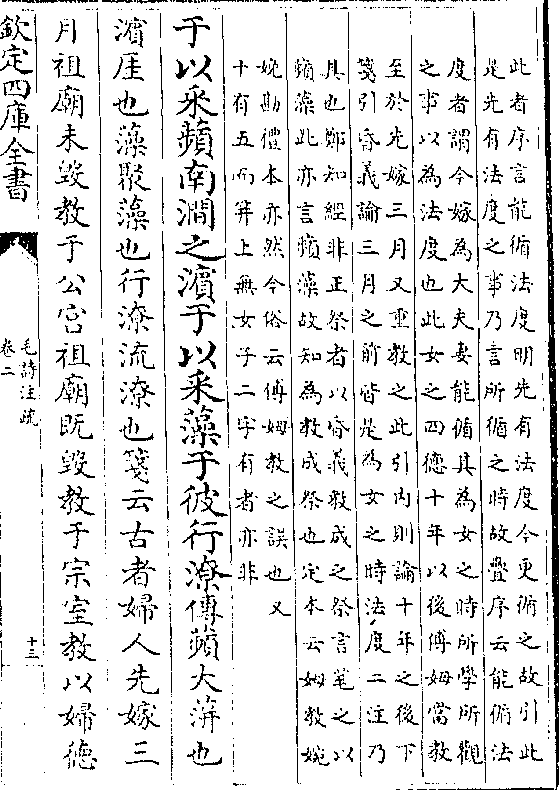 此者序言能循法度明先有法度今更循之故引此
是先有法度之事乃言所循之時故疊序云能循法
度者謂今嫁為大夫妻能循其為女之時所學所觀
之事以為法度也此女之四德十年以後傅姆當教
至於先嫁三月又重教之此引内則論十年之後下
箋引昏義論三月之前皆是為女之時法度二注乃
具也鄭知經非正祭者以昏義教成之祭言芼之以
蘋藻此亦言蘋藻故知為教成祭也定本云姆教婉
娩勘禮本亦然今俗云傅姆教之誤也又
十有五而笄上無女子二字有者亦非
于以采蘋南澗之濵于以采藻于彼行潦傳蘋大蓱也
濵厓也藻聚藻也行潦流潦也箋云古者婦人先嫁三
月祖廟未毀教于公宫祖廟既毀教于宗室教以婦徳
欽定四庫全書
毛詩注疏
卷二
十三